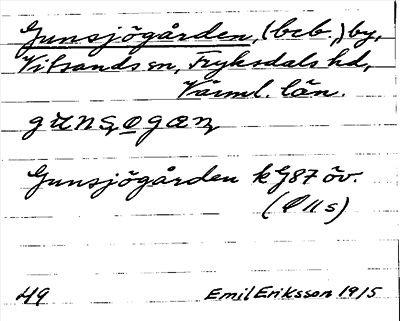 Gunsjögården, (beb.) by,
Vitsands sn, Fryksdals hd,
Värml. län.
Gunsjögården k G87 öv.
49 Emil Eriksson 1915